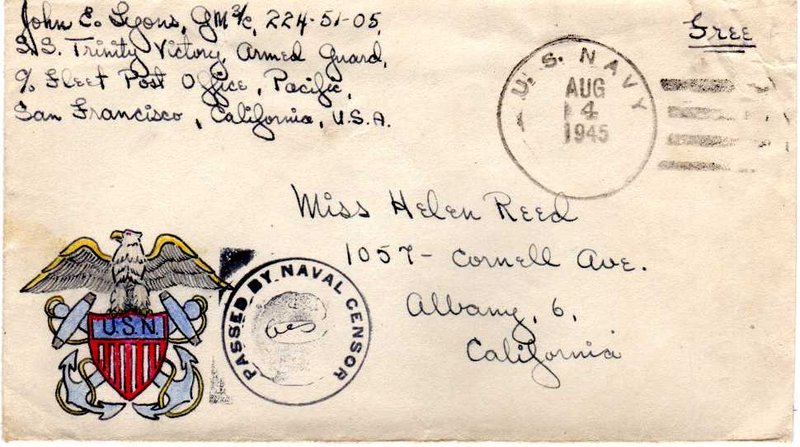 John E. Lyons, GM 3/c, 224-51-05,
S.S. Trinity Victory, Armed Guard,
℅ Fleet Post Office, Pacific,
San Francisco, California, U.S.A.
Free
U.S. NAVY
AUG
4
1945
Miss Helen Reed
1057- Cornell Ave.
Albany, 6,
California
U.S.N.
PASSED BY NAVAL CENSOR